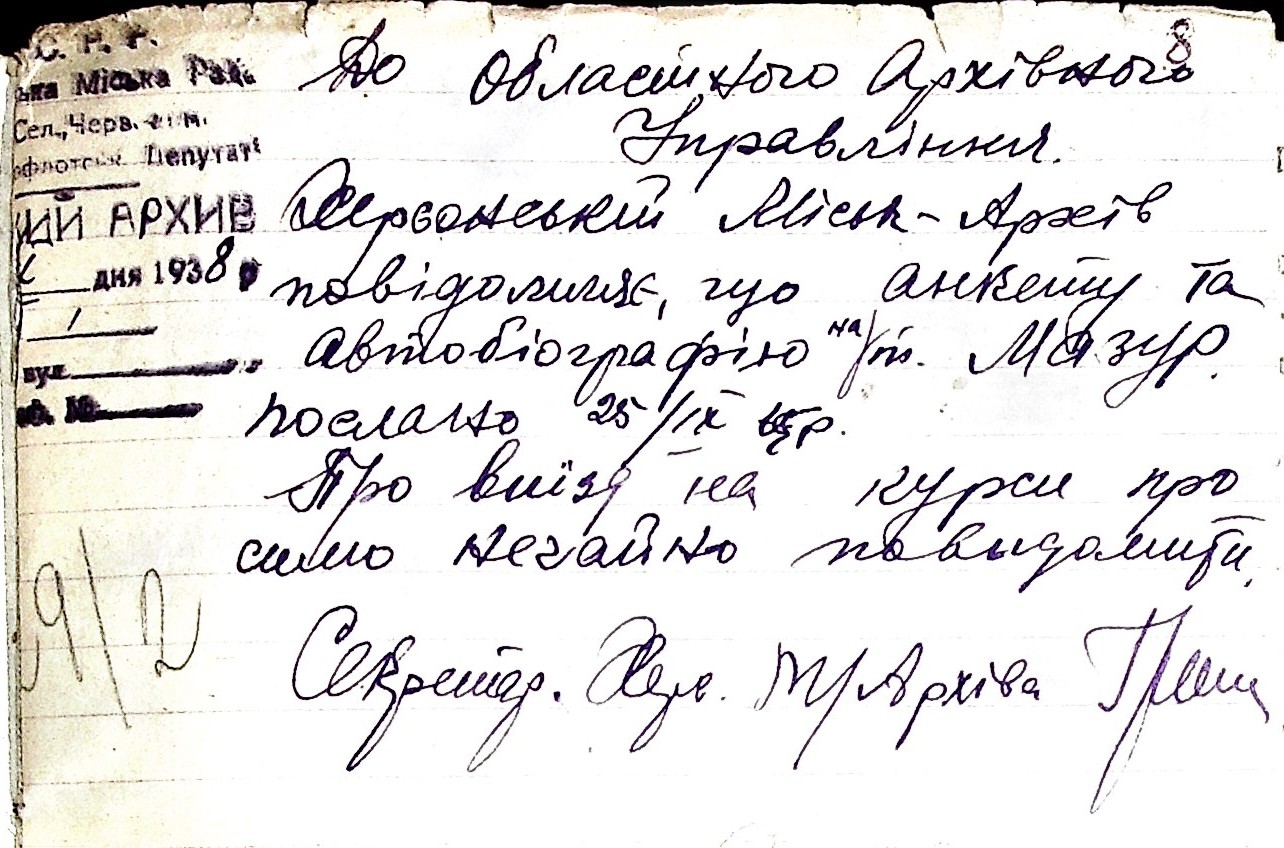 8
С. Р. Р.
ька Міська Рада
Сел., Черв. -
офлотськ. Депутаті
ИЙ АРХИВ
дня 1938 р
вул
№
До Обласного Архівного
Управління.
Херсонський Міськ-Архів
повідомляє, що анкету та
автобіографію на/т. Мазур
послано 25/IX р.
Про виїзд на курси про
симо негайно повидомити.
Секретар. Хер. М/Архіва
19/2